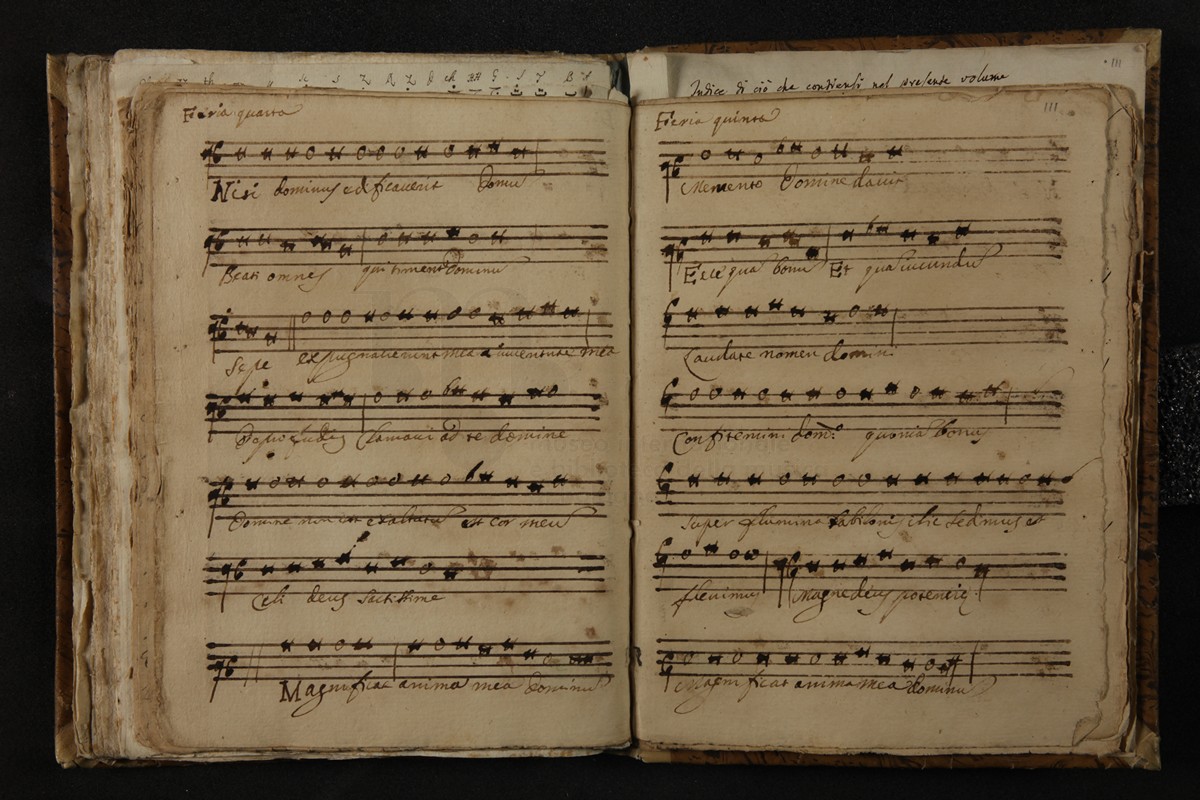 Feria quarta
Nisi dominus edificaverit domu
Beati omnes qui timent dominu
Sepe expugnaverunt mea a iuventute mea
De profudis Clamavi ad te domine
Domine non est exaltatu est cor meu
Celi deus Sactissime
Magnificat anima mea dominu
Indice di ciò che contiensi nel presente volume
III
III
Feria quinta
Memento Domine davit
Ecce qua bonu Et qua iucundu
Laudate nomen domini
Confitemini dom. quonia bonus
Super flumina babilonis illic sedimus et
flevimus Magne deus potencie
Magnificat anima mea dominu